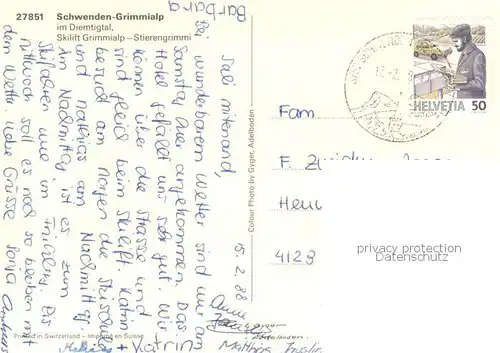 27851 Schwenden-Grimmialp
im Diemtigtal,
Skilift Grimmialp – Stierengrimmi
Barbara
15.2.88
Sali mitenand,
Bei wunderbarem Wetter sind wir am
Samstag hier angekommen. Das
Hotel gefällt uns sehr gut. Wir
können über die Strasse und
sind gleich beim Skilift. Katrin
besucht am Morgen die Skischule
und Mathias am Nachmittag.
Am Nachmittag ist es zum
Skifahren wie im Frühling. Bis
Mittwoch soll es noch so bleiben mit
dem Wetter. Liebe Grüsse Sonja Andreas
+ Katrin
Colour Photo by Gyger, Adelboden
Printed in Switzerland – Imprimé en Suisse
HELVETIA 50
Fam
F.
4123
privacy protection
Datenschutz